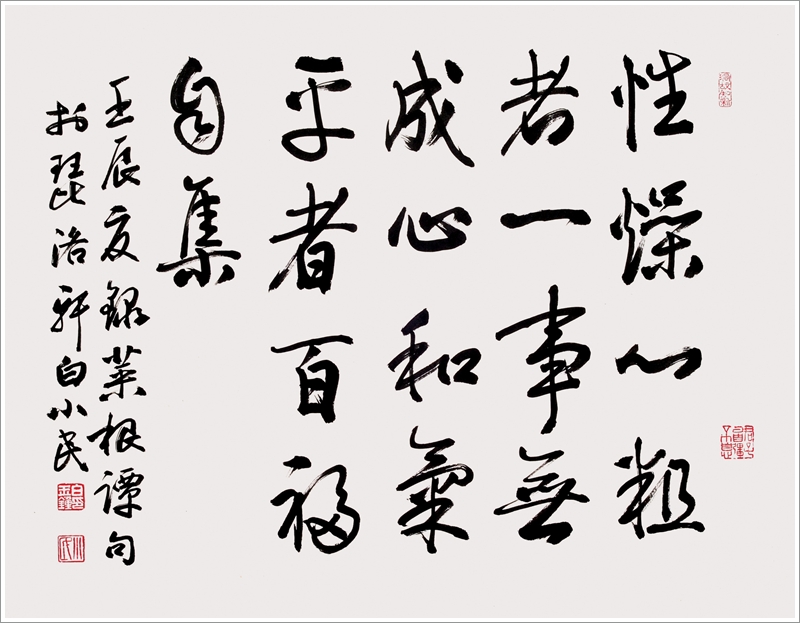 性燥心粗
者一事無
成心和氣
平者百福
自集
壬辰夏錄菜根譚句
於琵洛軒白小民